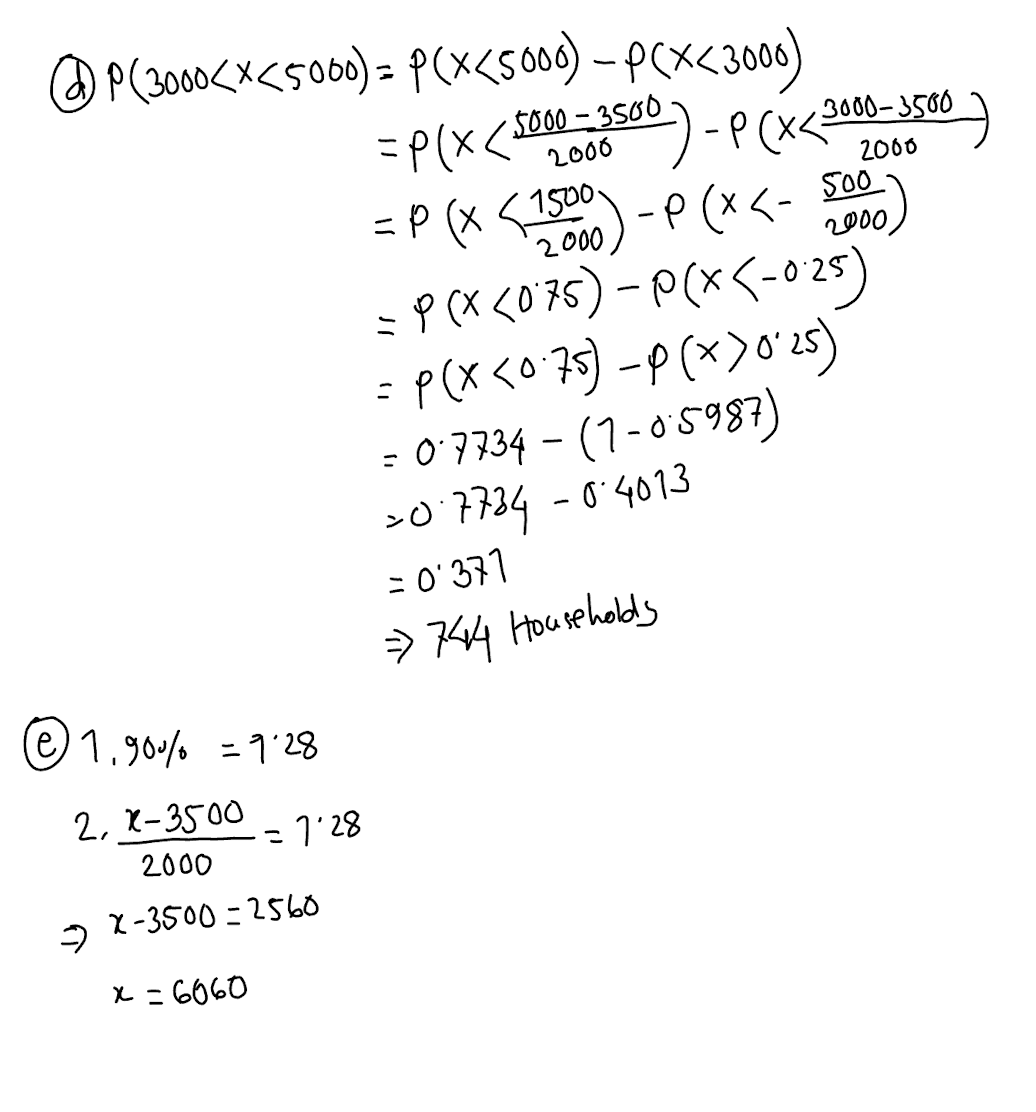 (d) P(3000<X<5000) = P(X<5000) - P(X<3000)
= P(X < (5000-3500)/2000) - P(X < (3000-3500)/2000)
= P(X < 1500/2000) - P(X < - 500/2000)
= P(X<0.75) - P(X<-0.25)
= P(X<0.75) - P(X>0.25)
= 0.7734 - (1-0.5987)
= 0.7734 - 0.4013
= 0.371
⇒ 744 Households
(e) 1. 90% = 1.28
2. (x-3500)/2000 = 1.28
⇒ x-3500 = 2560
x = 6060